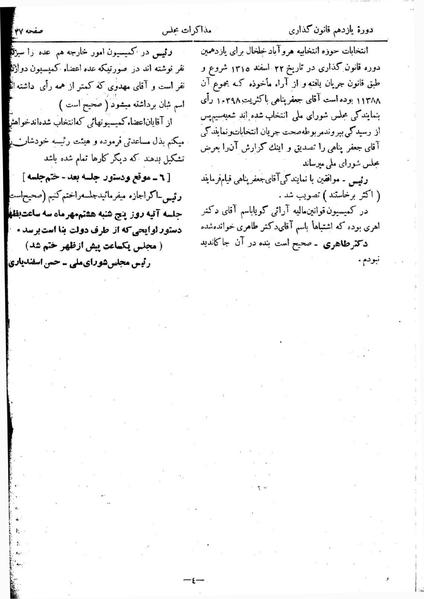 دورۀ یازدهم قانون گذاری
مذاکرات مجلس
صفحه ۳۷
انتخابات حوزه انتخابیه هروآباد خلخال برای یازدهمین
دوره قانون گذاری در تاریخ ۲۲ اسفند ۱۳۱۵ شروع و
طبق قانون جریان یافته و از آراء مأخوذه که مجموع آن
۱۱۳۸۸ بوده است آقای جعفر پناهی باکثریت ۱۰۲۹۸ رأی
بنمایندگی مجلس شورای ملی انتخاب شده شعبه سیم پس
از رسیدگی بپرونده مربوطه صحت جریان انتخابات و نمایندگی
آقای جعفر پناهی را تصدیق و اینك گزارش آن را بعرض
مجلس شورای ملی میرساند
رئیس ـ موافقین با نمایندگی آقای جعفر پناهی قیام فرمایند
( اکثر برخاستند ) تصویب شد .
در کمیسیون قوانین مالیه آرائی گویا باسم آقای دکتر
اهری بوده که اشتباهاً باسم آقای دکتر طاهری خوانده شده
دکتر طاهری ـ صحیح است بنده در آن جا کاندید
نبودم .
رئیس ـ در کمیسیون امور خارجه هم عده را
نفر نوشته اند در صورتیکه عده اعضاء کمیسیون
نفر است و آقای مهدوی که کمتر از همه رأی داشته
اسم شان برداشته میشود ( صحیح است )
از آقایان اعضاء کمیسیونهائی که انتخاب شده اند خواهش
میکنم بذل مساعدتی فرموده و هیئت رئیسه خودشان
تشکیل بدهند که دیگر کارها تمام شده باشد
[ ۶ ـ موقع و دستور جلسه بعد ـ ختم جلسه ]
رئیس ـ اگر اجازه میفرمائید جلسه را ختم کنیم ( صحیح است )
جلسه آتیه روز پنج شنبه هشتم مهر ماه سه ساعت بظهر
دستور لوایحی که از طرف دولت بنا است برسد .
( مجلس یکساعت پیش از ظهر ختم شد )
رئیس مجلس شورای ملی ـ حسن اسفندیاری
ـ٤ـ